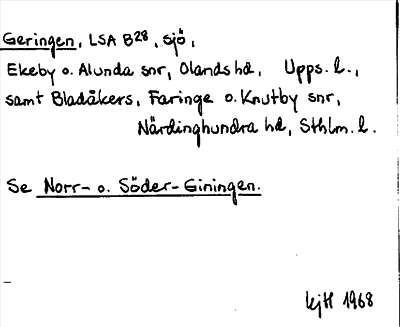 Geringen, LSA B28, sjö,
Ekeby o. Alunda snr, Olands hd, Upps. l.,
samt Bladåkers, Faringe o. Knutby snr,
Närdinghundra hd, Sthlm. l.
Se Norr- o. Söder-Giningen.
kjH 1968